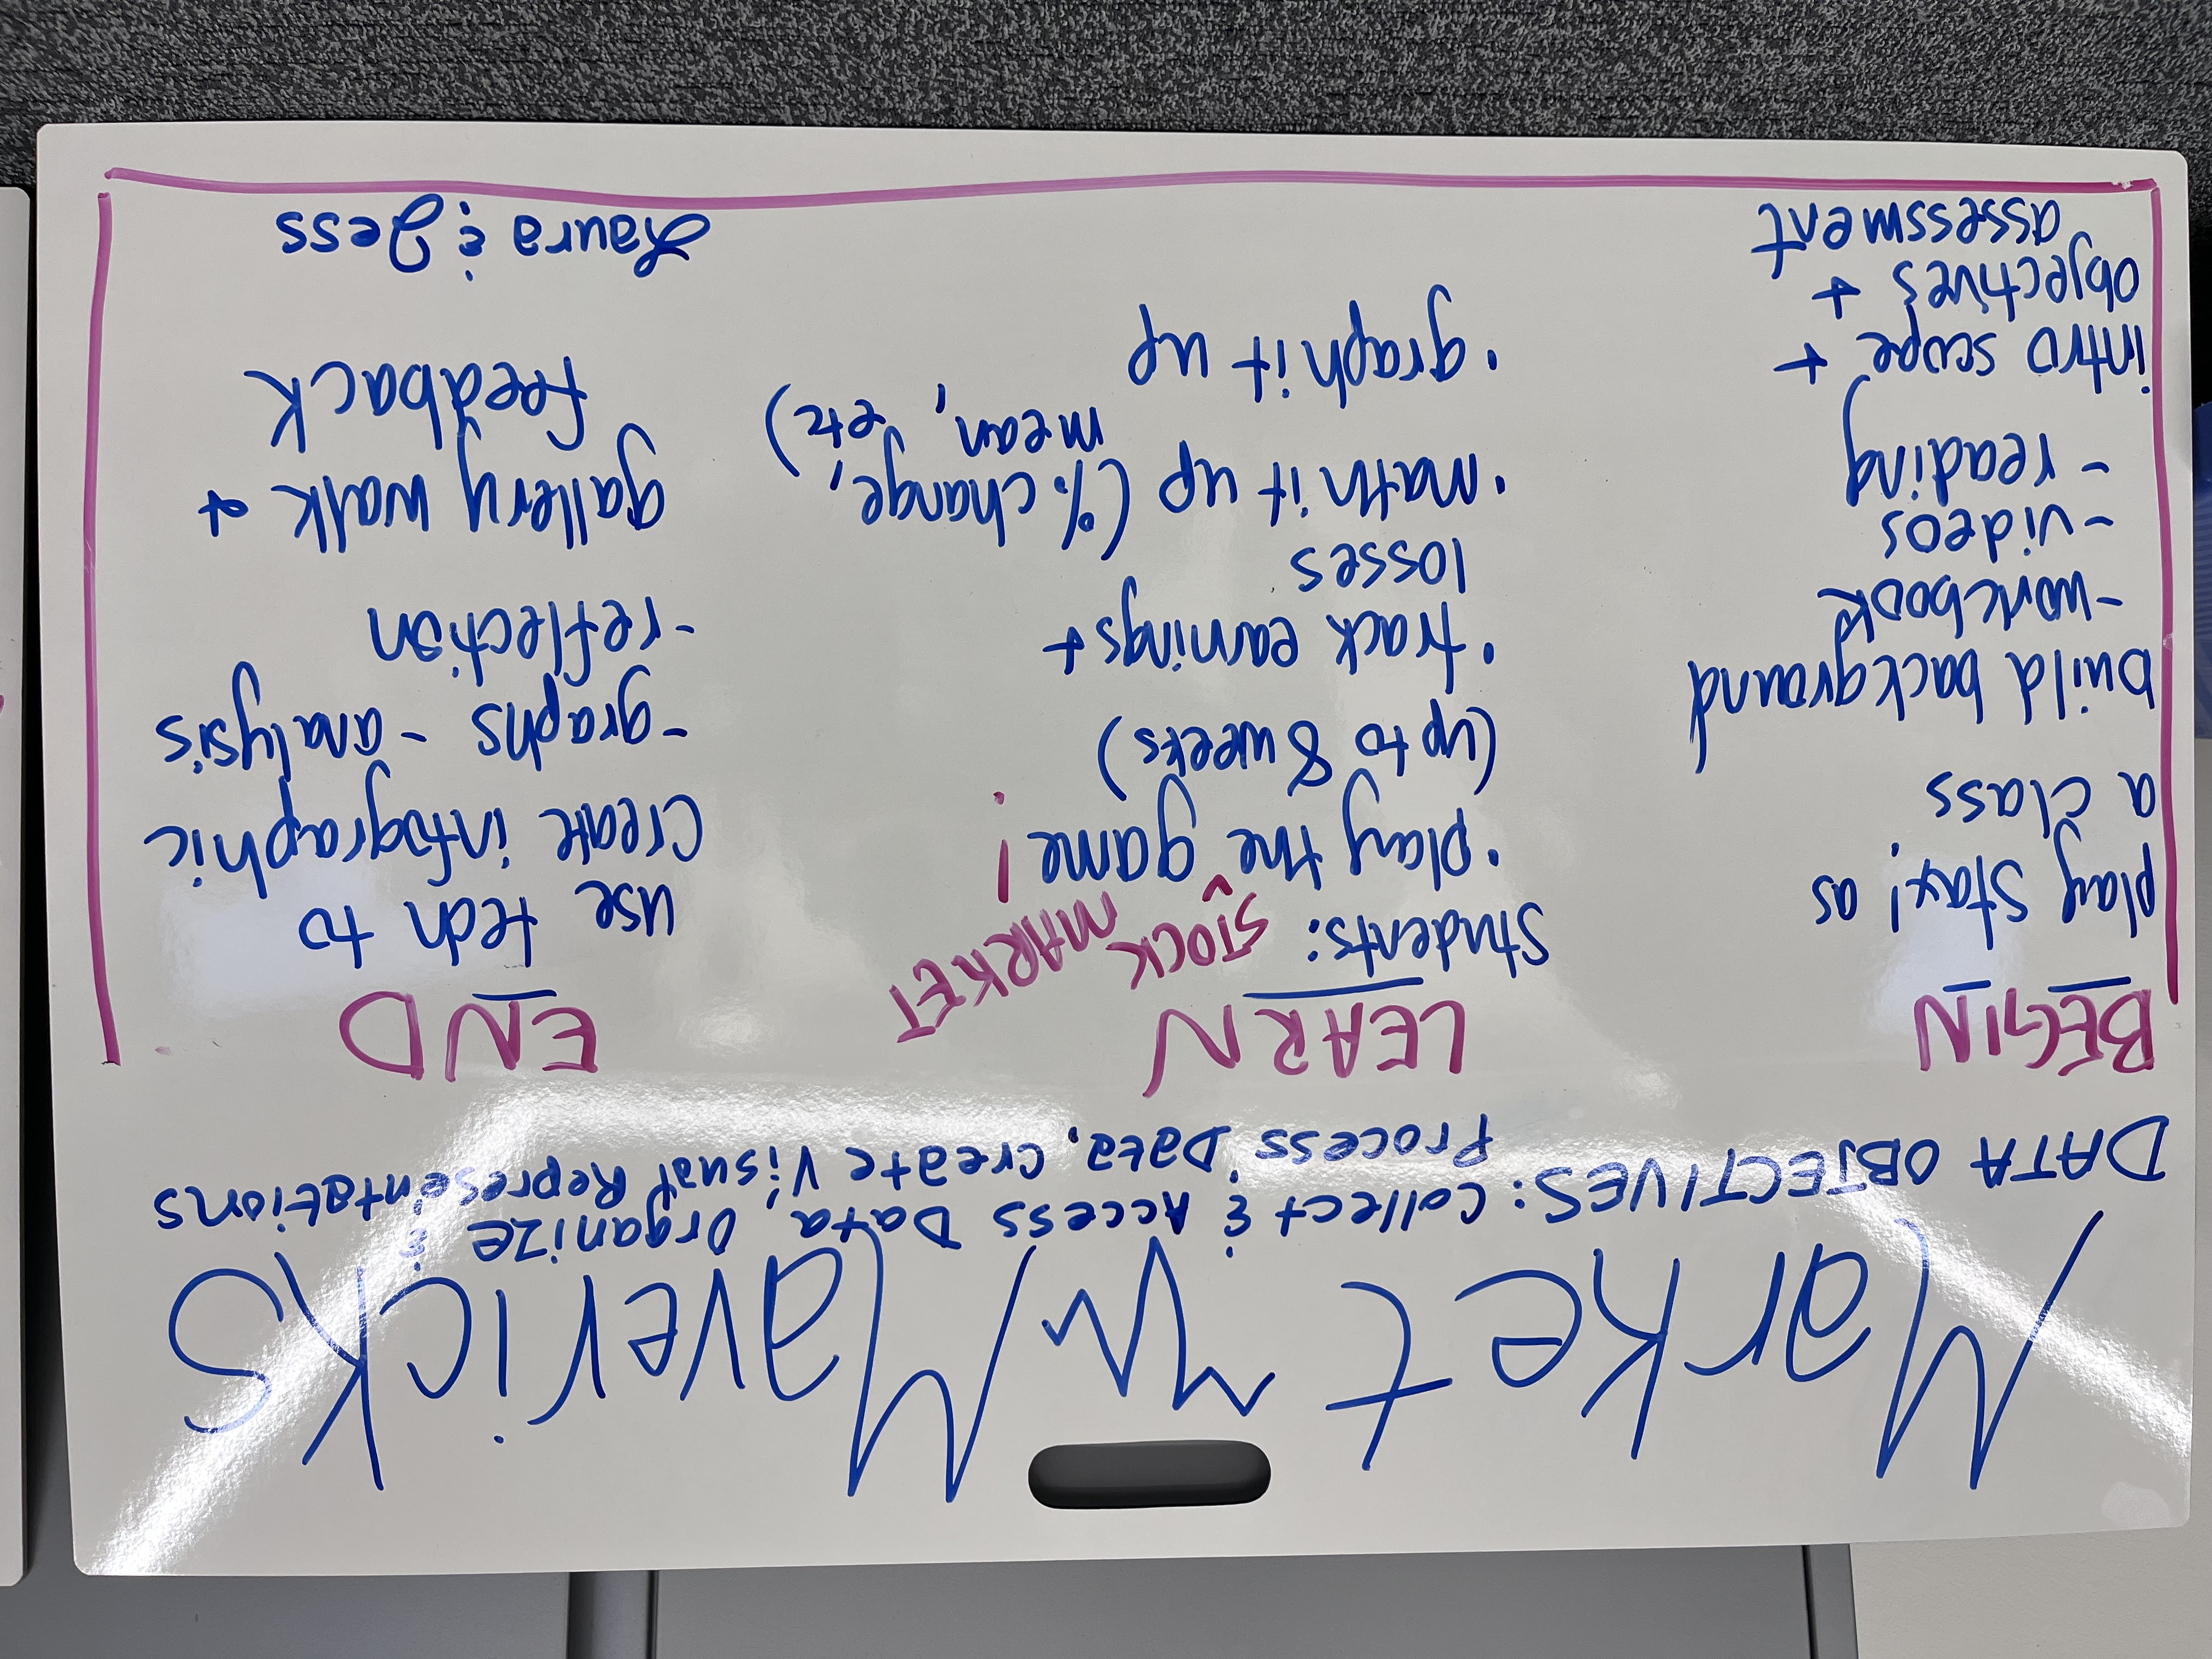 Market Mavericks
DATA OBJECTIVES: Collect & Access Data, Organize &
Process Data, Create Visual Representations
BEGIN
play Stax! as
a class
build background
-workbook
-videos
-reading
intro scope +
objectives +
assessment
LEARN
Students:
STOCK MARKET
• play the game!
(up to 8 weeks)
• track earnings +
losses
• math it up (% change,
mean, etc)
• graph it up
END
use tech to
create infographic
-graphs -analysis
-reflection
gallery walk +
feedback
Laura & Jess